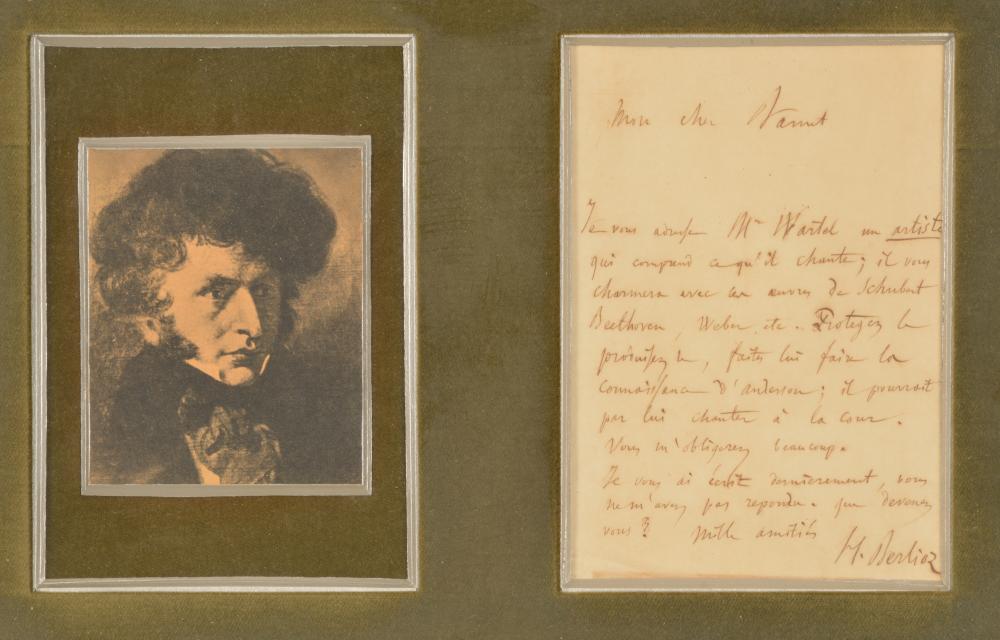 Mon cher
Je vous adresse Mr Wartel un artiste
qui comprend ce qu'il chante; il vous
charmera avec les œuvres de Schubert
Beethoven, Weber, etc. Protegez le
produisez le, faites lui faire la
connaissance d'anderson; il pourrait
par lui chanter à la cour.
Vous m'obligerez beaucoup.
Je vous ai écrit dernierement, vous
ne m'avez pas repondu. que devenez
vous? Mille amitiés
H. Berlioz